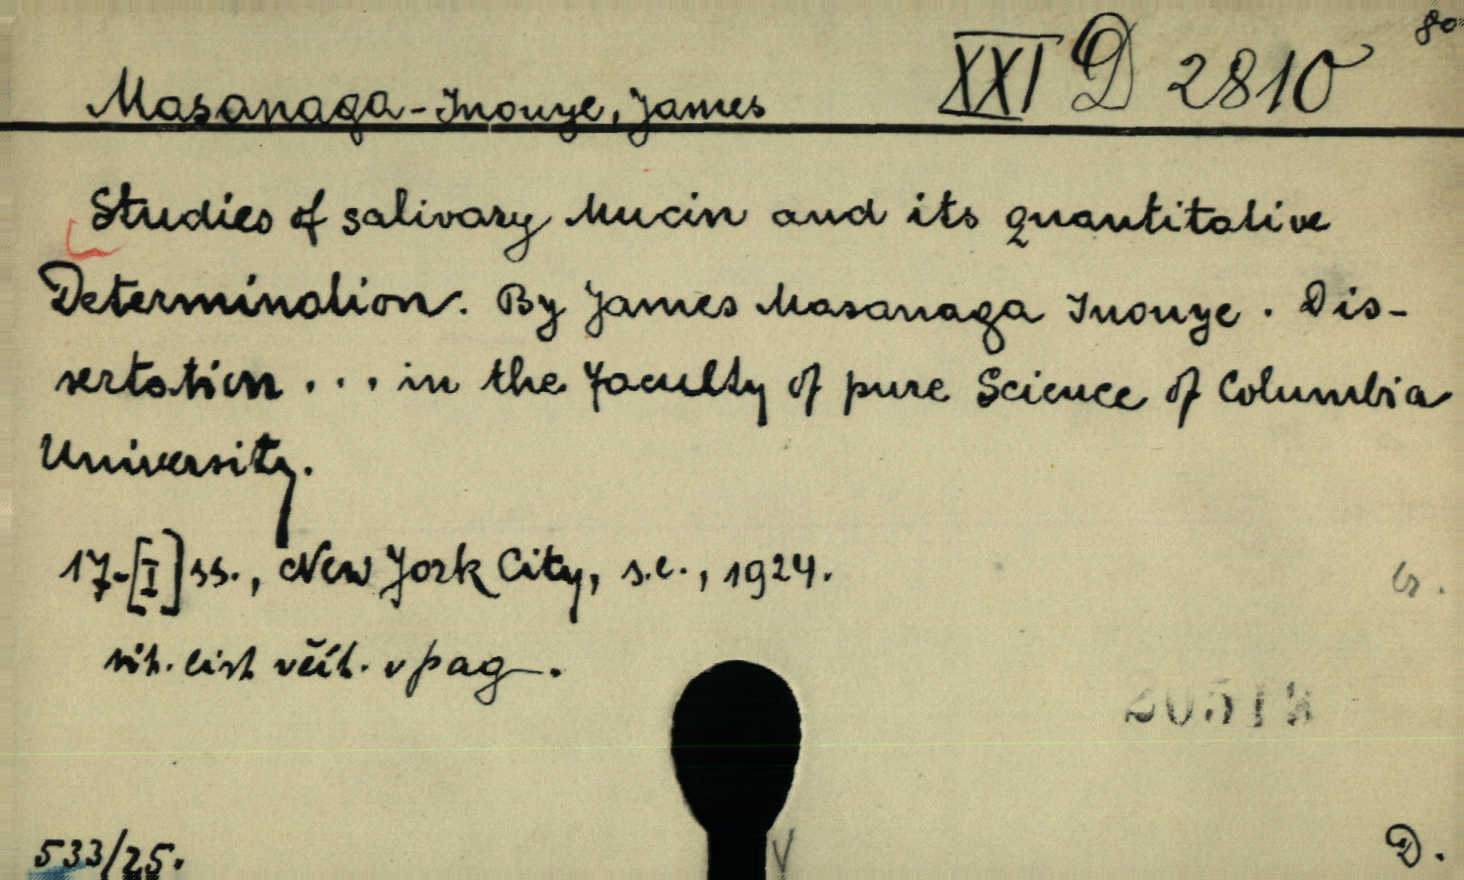 80
XXI D 2810
Masanaga-Inouye, James
Studies of salivary Mucin and its quantitative
Determination. By James Masanaga Inouye. Dis-
sertation ... in the Faculty of pure Science of Columbia
University.
17-[I] ss., New York City, s.e., 1924.
tit. list včít. v pag.
533/25.
D.